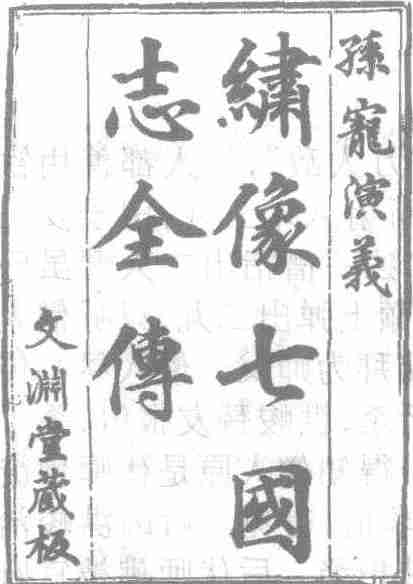 孫龐演義
繡像七國
志全傳
文淵堂藏板